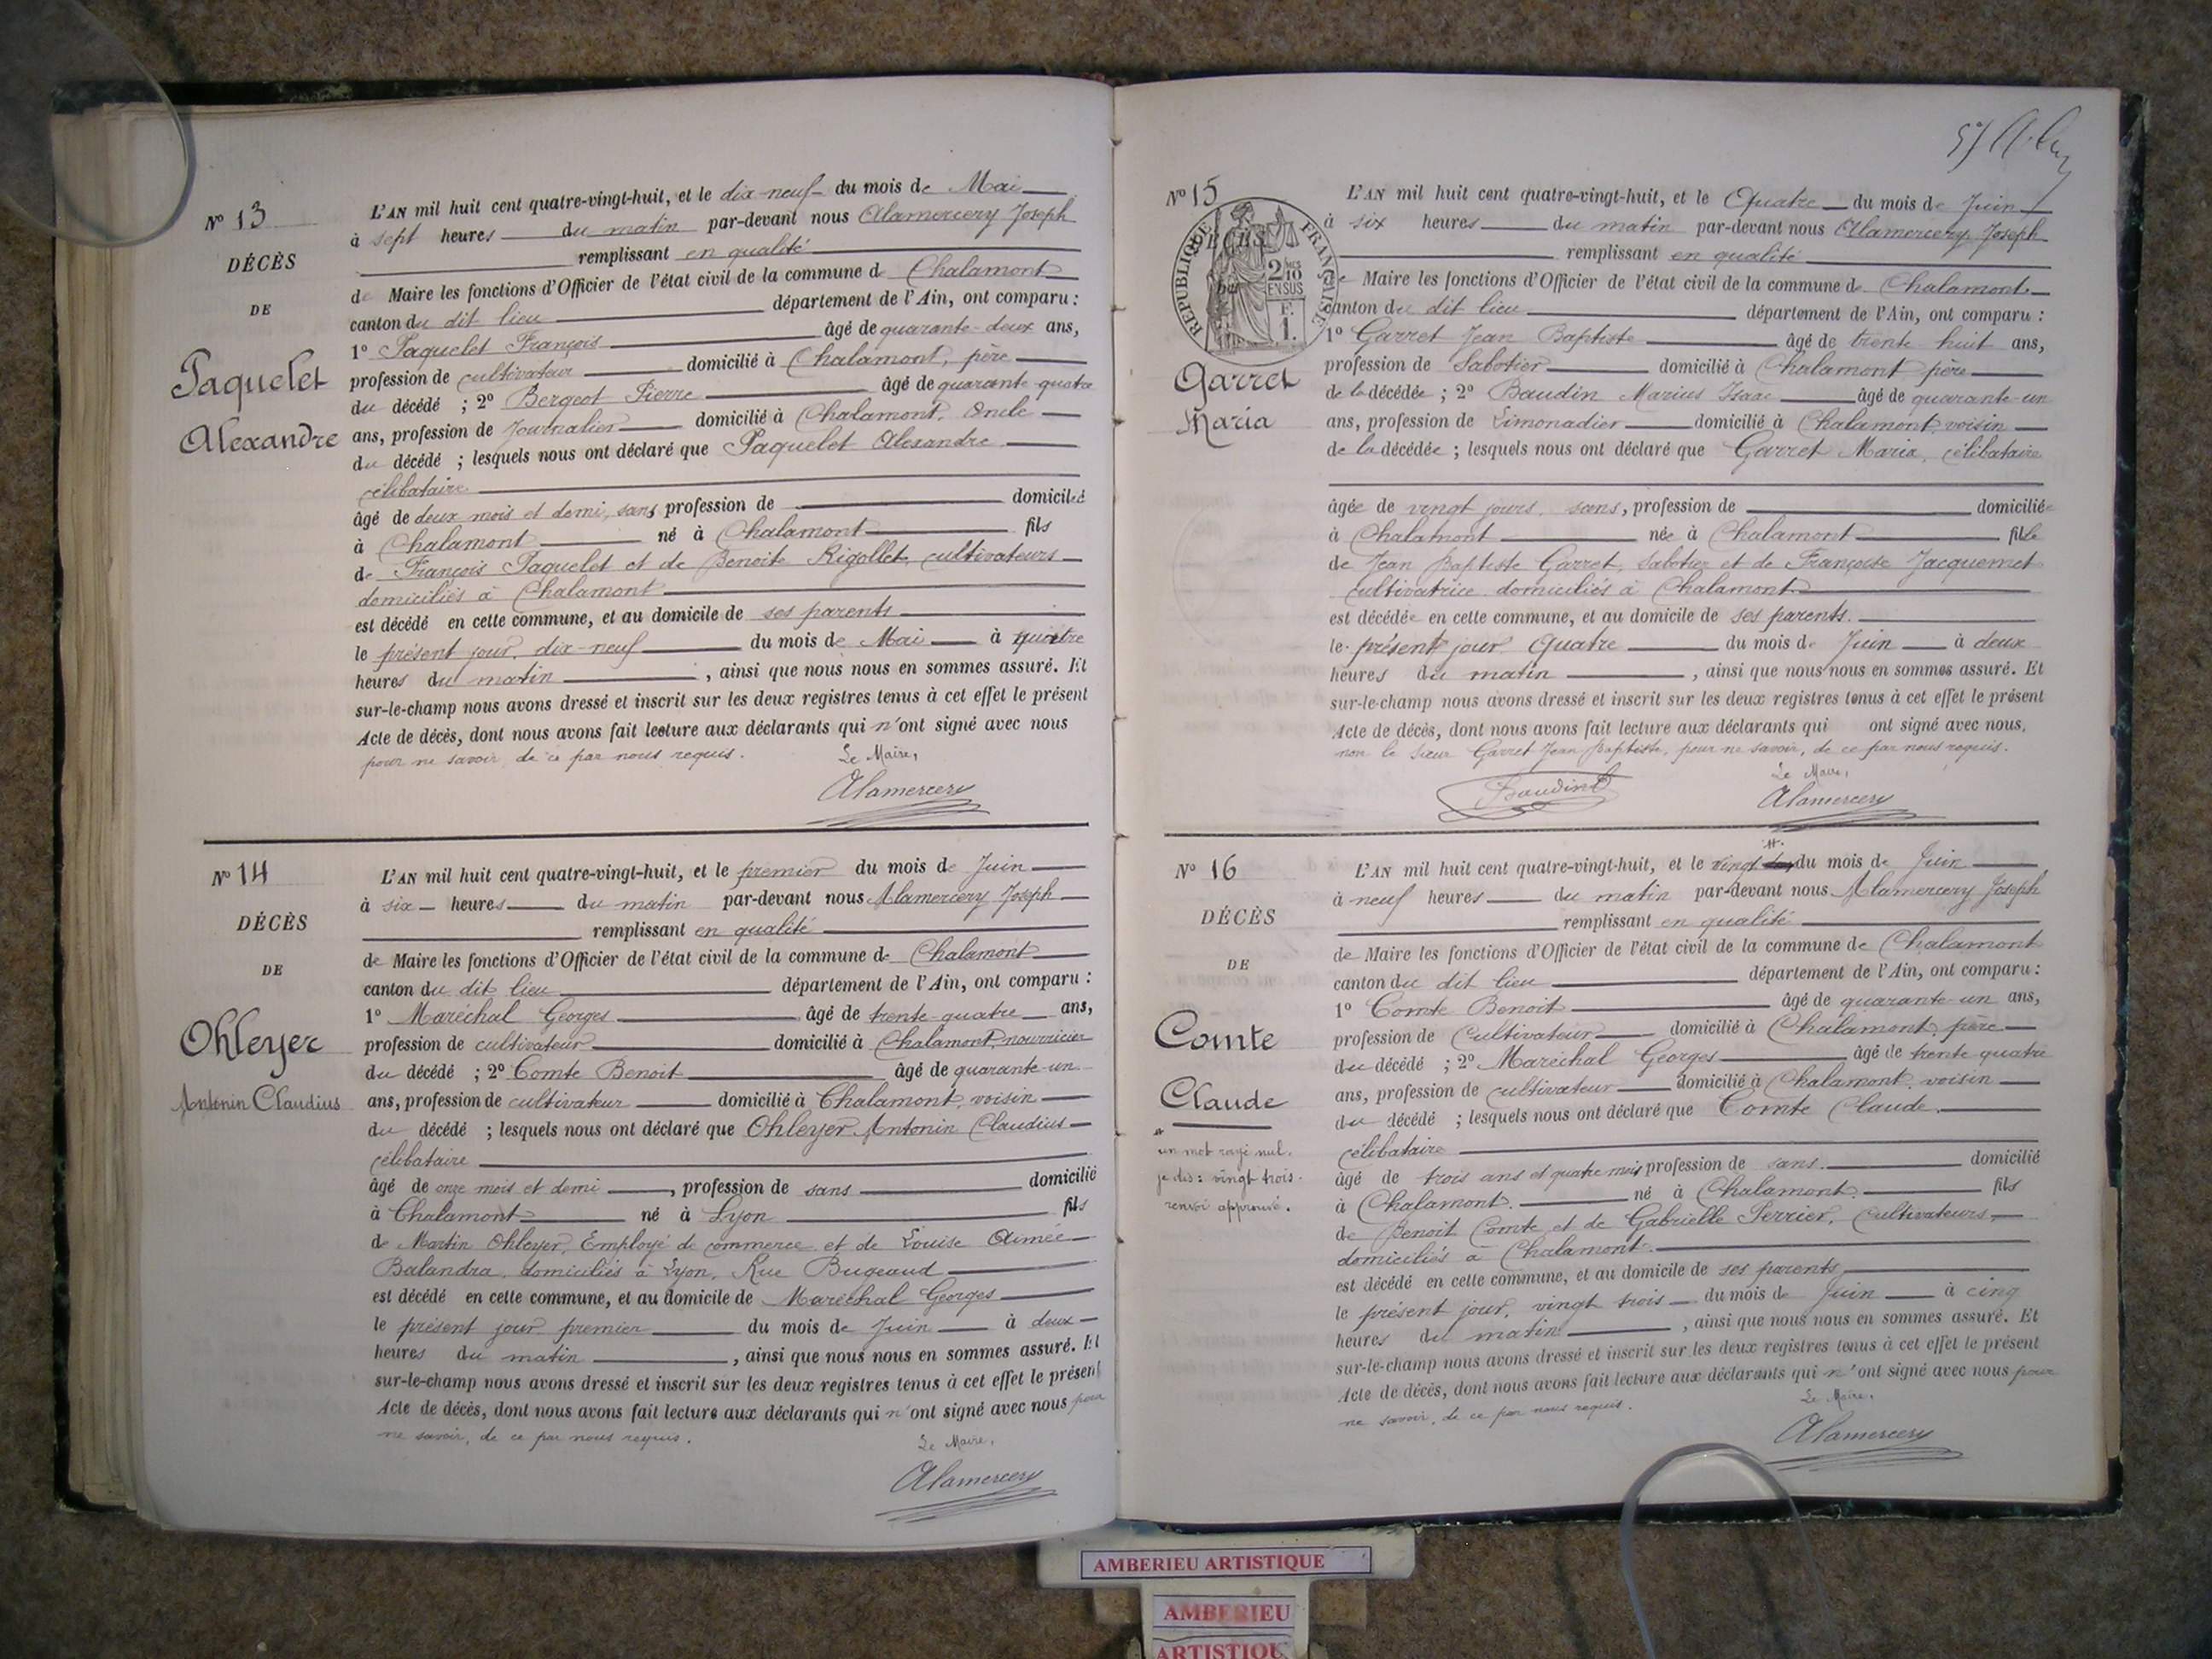 N° 13
DÉCÈS
DE
Paquelet
Alexandre
L'AN mil huit cent quatre-vingt-huit, et le dix-neuf du mois de Mai
à sept heures du matin par-devant nous Alamercery Joseph
remplissant en qualité
de Maire les fonctions d'Officier de l'état civil de la commune de Chalamont
canton du dit lieu département de l'Ain, ont comparu :
1° Paquelet François âgé de quarante-deux ans,
profession de cultivateur domicilié à Chalamont, père
du décédé ; 2° Bergeot Pierre âgé de quarante quatre
ans, profession de Journalier domicilié à Chalamont, Oncle
du décédé ; lesquels nous ont déclaré que Paquelet Alexandre
célibataire
âgé de deux mois et demi, sans profession de domicilié
à Chalamont né à Chalamont fils
de François Paquelet et de Benoite Rigollet, cultivateurs
domiciliés à Chalamont
est décédé en cette commune, et au domicile de ses parents
le présent jour, dix-neuf du mois de Mai à quatre
heures du matin , ainsi que nous nous en sommes assuré. Et
sur-le-champ nous avons dressé et inscrit sur les deux registres tenus à cet effet le présent
Acte de décès, dont nous avons fait lecture aux déclarants qui n'ont signé avec nous
pour ne savoir, de ce par nous requis.
Le Maire,
Alamercery
N° 14
DÉCÈS
DE
Ohleyer
Antonin Claudius
L'AN mil huit cent quatre-vingt-huit, et le premier du mois de Juin
à six heures du matin par-devant nous Alamercery Joseph
remplissant en qualité
de Maire les fonctions d'Officier de l'état civil de la commune de Chalamont
canton du dit lieu département de l'Ain, ont comparu :
1° Maréchal Georges âgé de trente-quatre ans,
profession de cultivateur domicilié à Chalamont, nourricier
du décédé ; 2° Comte Benoit âgé de quarante-un
ans, profession de cultivateur domicilié à Chalamont, voisin
du décédé ; lesquels nous ont déclaré que Ohleyer Antonin Claudius
célibataire
âgé de onze mois et demi , profession de sans domicilié
à Chalamont né à Lyon fils
de Martin Ohleyer, Employé de commerce et de Louise Aimée
Balandra, domiciliés à Lyon, Rue Bugeaud
est décédé en cette commune, et au domicile de Maréchal Georges
le présent jour premier du mois de Juin à deux
heures du matin , ainsi que nous nous en sommes assuré. Et
sur-le-champ nous avons dressé et inscrit sur les deux registres tenus à cet effet le présent
Acte de décès, dont nous avons fait lecture aux déclarants qui n'ont signé avec nous pour
ne savoir, de ce par nous requis.
Le Maire,
Alamercery
N° 15
RÉPUBLIQUE FRANÇAISE
2/10
EN SUS
F.
1.
Garret
Maria
L'AN mil huit cent quatre-vingt-huit, et le Quatre du mois de Juin
à six heures du matin par-devant nous Alamercery Joseph
remplissant en qualité
de Maire les fonctions d'Officier de l'état civil de la commune de Chalamont
canton du dit lieu département de l'Ain, ont comparu :
1° Garret Jean Baptiste âgé de trente huit ans,
profession de Sabotier domicilié à Chalamont père
de la décédée ; 2° Baudin Marius Isaac âgé de quarante-un
ans, profession de Limonadier domicilié à Chalamont, voisin
de la décédée ; lesquels nous ont déclaré que Garret Maria, célibataire
âgée de vingt jours, sans, profession de domiciliée
à Chalamont née à Chalamont fille
de Jean Baptiste Garret, Sabotier et de Françoise Jacquemet
Cultivatrice domiciliés à Chalamont
est décédée en cette commune, et au domicile de ses parents.
le présent jour Quatre du mois de Juin à deux
heures du matin , ainsi que nous nous en sommes assuré. Et
sur-le-champ nous avons dressé et inscrit sur les deux registres tenus à cet effet le présent
Acte de décès, dont nous avons fait lecture aux déclarants qui ont signé avec nous,
non le sieur Garret Jean Baptiste, pour ne savoir, de ce par nous requis.
Baudin
Le Maire,
Alamercery
N° 16
DÉCÈS
DE
Comte
Claude
un mot rayé nul.
je dis : vingt trois.
renvoi approuvé.
L'AN mil huit cent quatre-vingt-huit, et le vingt du mois de Juin
à neuf heures du matin par-devant nous Alamercery Joseph
remplissant en qualité
de Maire les fonctions d'Officier de l'état civil de la commune de Chalamont
canton du dit lieu département de l'Ain, ont comparu :
1° Comte Benoit âgé de quarante-un ans,
profession de Cultivateur domicilié à Chalamont, père
du décédé ; 2° Maréchal Georges âgé de trente quatre
ans, profession de cultivateur domicilié à Chalamont, voisin
du décédé ; lesquels nous ont déclaré que Comte Claude.
célibataire
âgé de trois ans et quatre mois profession de sans. domicilié
à Chalamont. né à Chalamont. fils
de Benoit Comte et de Gabrielle Perrier, Cultivateurs,
domiciliés à Chalamont.
est décédé en cette commune, et au domicile de ses parents
le présent jour, vingt trois du mois de Juin à cinq
heures du matin , ainsi que nous nous en sommes assuré. Et
sur-le-champ nous avons dressé et inscrit sur les deux registres tenus à cet effet le présent
Acte de décès, dont nous avons fait lecture aux déclarants qui n'ont signé avec nous pour
ne savoir, de ce par nous requis.
Le Maire,
Alamercery
AMBERIEU ARTISTIQUE
AMBERIEU
ARTISTIQU